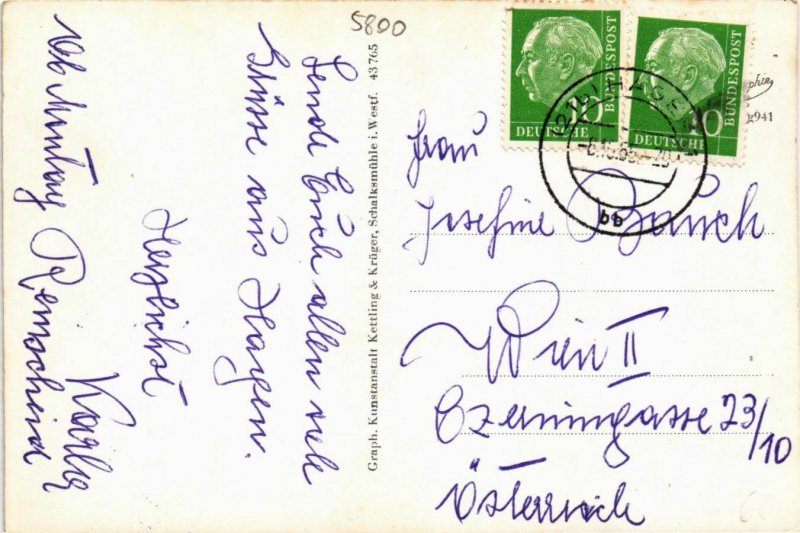 5800
Sende Euch allen viele
Grüsse aus Hagen.
Herzlichst
Karli
Ab Montag Remscheid
Graph. Kunstanstalt Kettling & Krüger, Schalksmühle i. Westf. 43765
10
DEUTSCHE
BUNDESPOST
10
DEUTSCHE
BUNDESPOST
HAGEN
bq
941
Frau
Josefine Bauch
Wien II
Czerningasse 23/10
Österreich